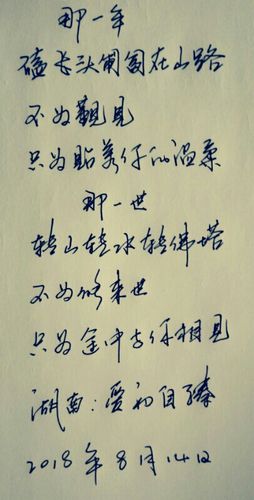 那一年
磕长头匍匐在山路
不为觐見
只为贴着你的温柔
那一世
转山转水转佛塔
不为修来世
只为途中与你相見
湖南:愛初自臻
2018年8月14日